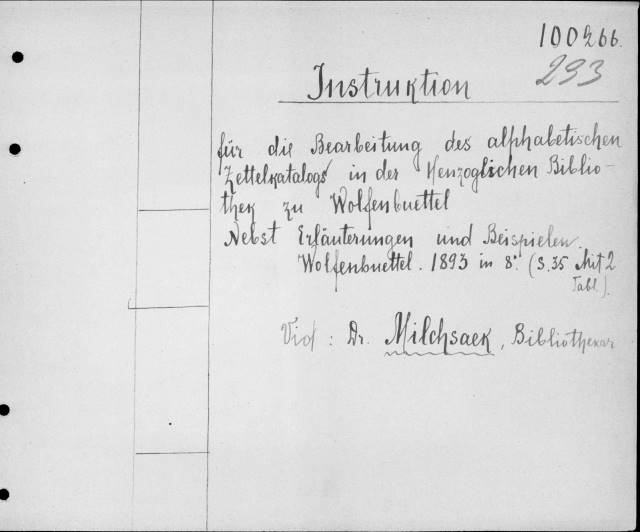 100266.
293
Instruktion
für die Bearbeitung des alphabetischen
Zettelkatalogs in der Herzoglichen Biblio-
thek zu Wolfenbuettel
Nebst Erläuterungen und Beispielen.
Wolfenbuettel. 1893 in 8°. (S. 35 Mit 2
Tabl.).
Vid: Dr. Milchsack, Bibliothekar